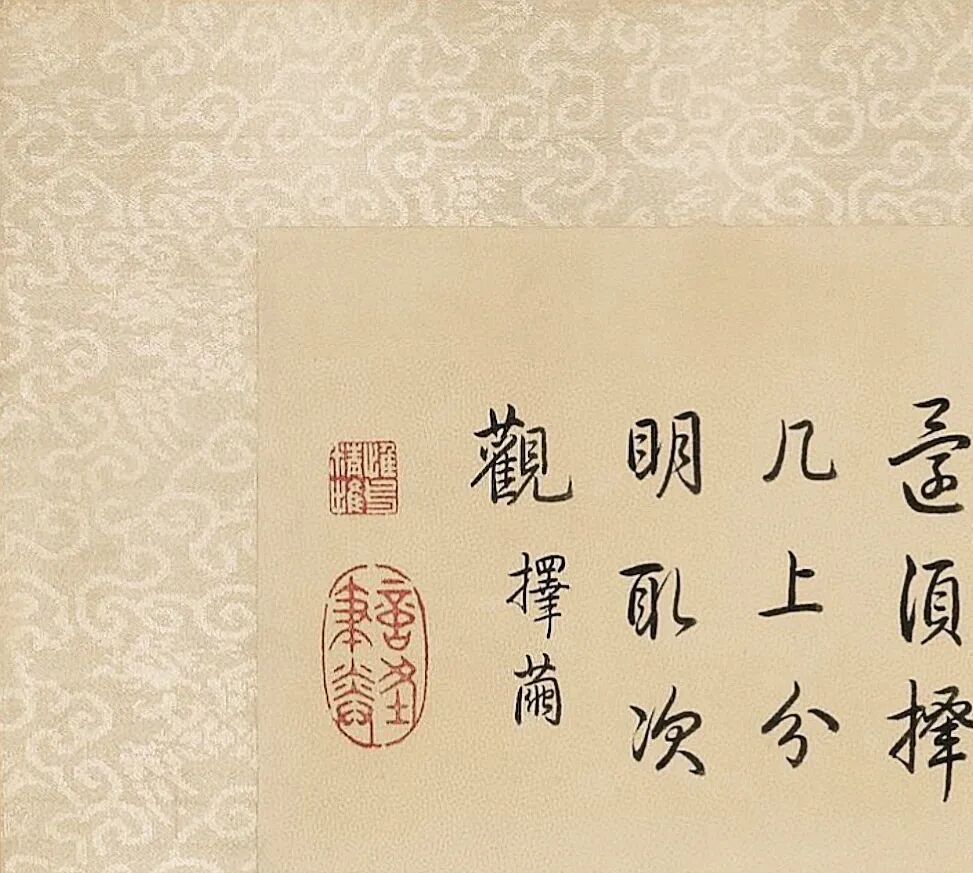 還須擇
几上分
明取次
觀
擇繭